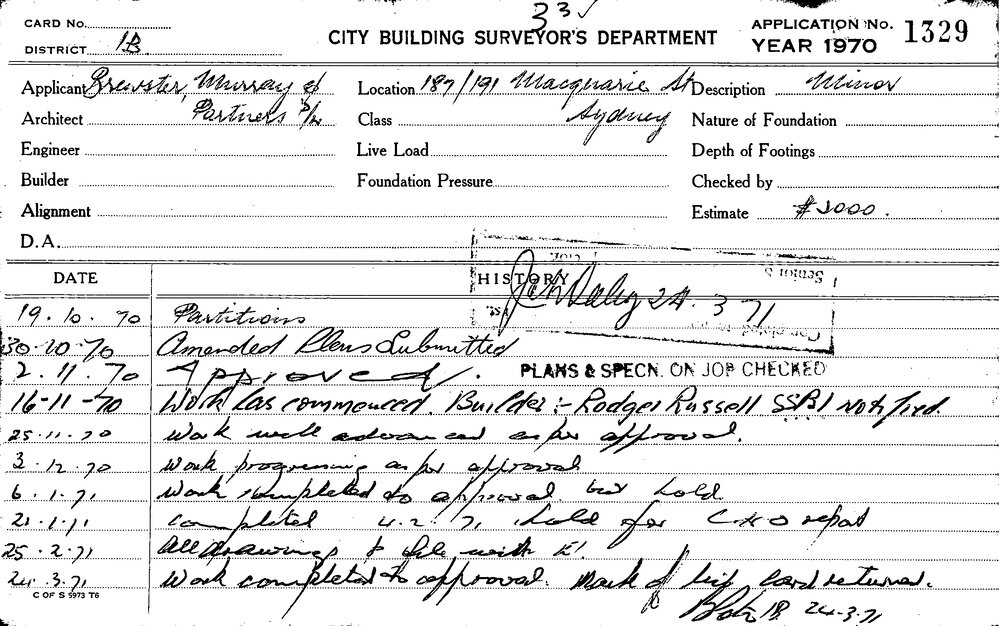 33 ✓
CARD No.
DISTRICT 1B
CITY BUILDING SURVEYOR'S DEPARTMENT
APPLICATION No. 1329
YEAR 1970
Applicant Brewster, Murray &
Location 187/191 Macquarie St
Description Minor
Architect Partners P/L
Class Sydney
Nature of Foundation
Engineer
Live Load
Depth of Footings
Builder
Foundation Pressure
Checked by
Alignment
Estimate $2000.
D.A.
DATE
HISTORY
24.3 71
19.10.70 Partitions
30.10.70 Amended Plans Submitted
2.11.70 Approved.
PLANS & SPECN. ON JOB CHECKED
16-11-70 Work has commenced. Builder:- Rodger Russell SSBI notified.
25.11.70 Work well advanced as per approval.
3.12.70 Work progressing as per approval
6.1.71 Work completed to approval but hold
21.1.71 Completed 4.2.71 hold for report
25.2.71 All drawings & file with
24.3.71 Work completed to approval. Mark off card returned.
C OF S 5973 T6
24-3-71